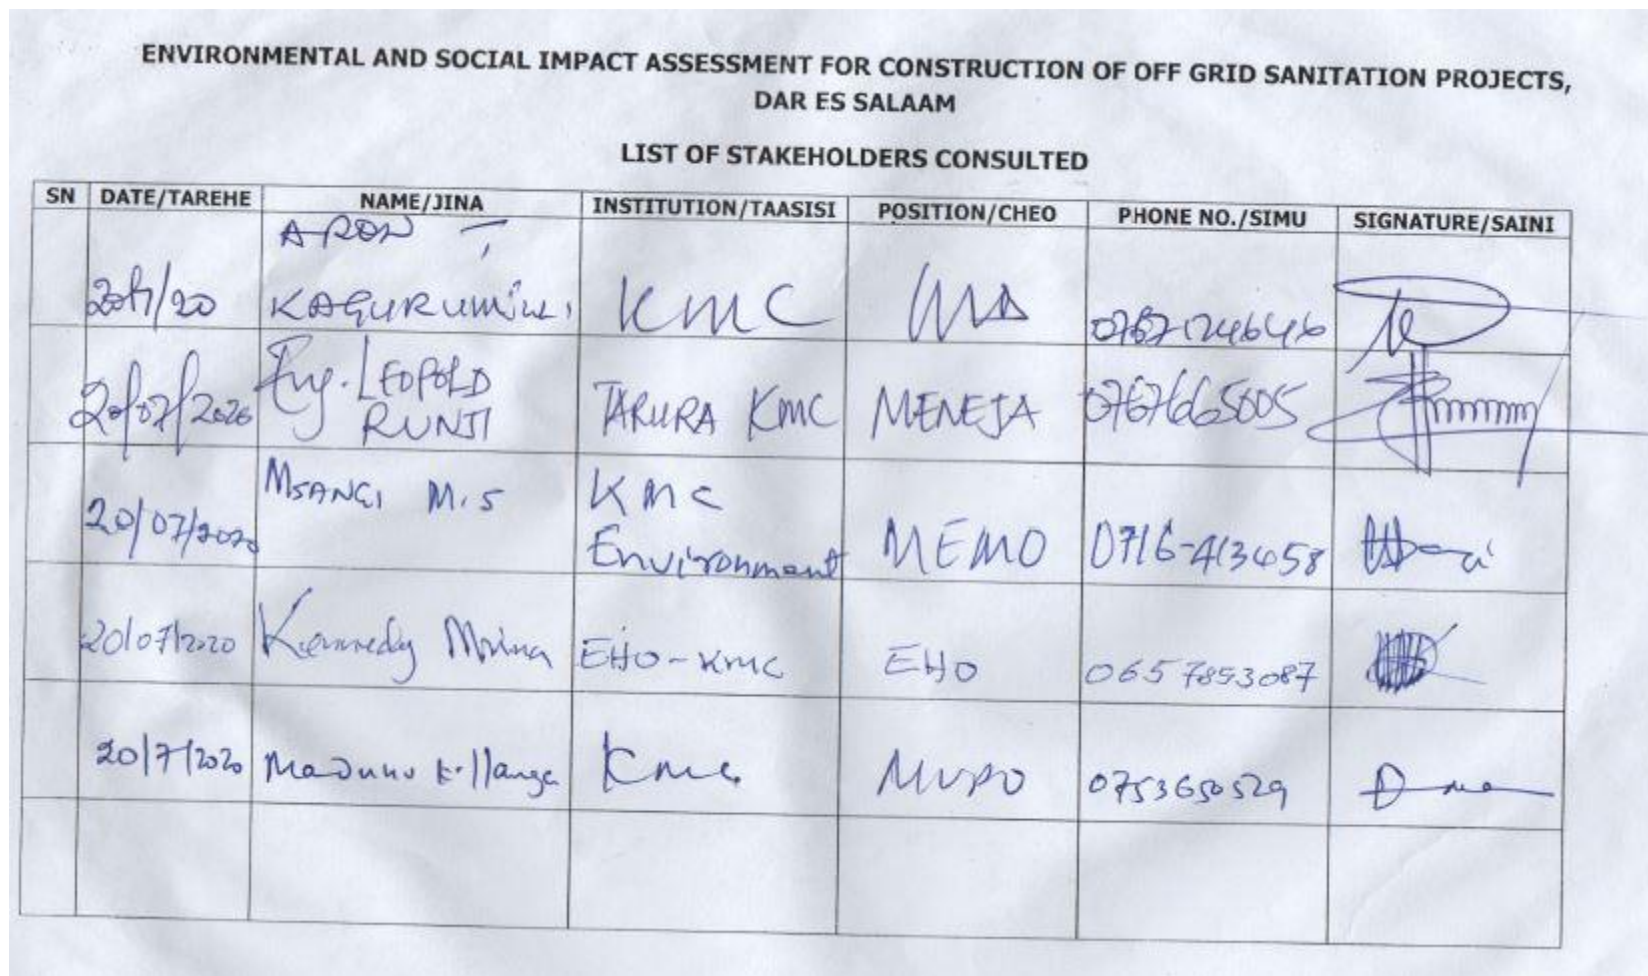 ENVIRONMENTAL AND SOCIAL IMPACT ASSESSMENT FOR CONSTRUCTION OF OFF GRID SANITATION PROJECTS,
DAR ES SALAAM
LIST OF STAKEHOLDERS CONSULTED
SN DATE/TAREHE NAME/JINA INSTITUTION/TAASISI POSITION/CHEO PHONE NO./SIMU SIGNATURE/SAINI
ARON T
KMC
20/07/2020 Eng. LEOPOLD
RUNJI TARURA KMC MENEJA 0767665005
MSANGI M.S KMC
20/07/2020 Environment MEMO 0716-413458
20/07/2020 Kennedy Mrina EHO-KMC EHO 0657853087
20/7/2020 Maduhu Killanga KMC 0753650529